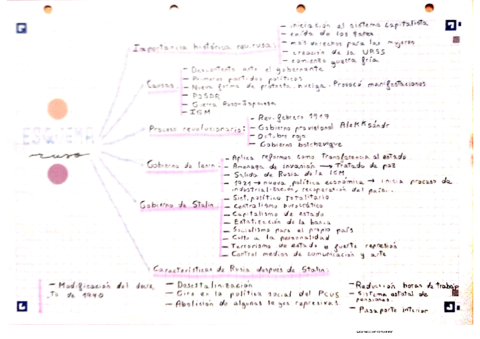 - iniciación al sistema capitalista
- caída de los zares
Importancia histórica rev. rusa:
- más derechos para las mujeres
- creación de la URSS
- comenzó guerra fría
- Descontento ante el gobernante
- Primeros partidos políticos
Causas:
- Nueva forma de protesta: huelga. Provocó manifestaciones
- PSDR
- Guerra Ruso-Japonesa
- IGM
- Rev. febrero 1917
Proceso revolucionario:
- Gobierno provisional
- Octubre rojo
- Gobierno bolchevique
ESQUEMA
ruso
- Aplica reformas como transferencia al estado
Gobierno de Lenin
- Amenaza de invasión → Tratado de paz
- Salida de Rusia de la IGM
- nueva política económica → inicia proceso de
industrialización, recuperación del país...
- Sist. político totalitario
Gobierno de Stalin
- Centralismo burocrático
- Capitalismo de estado
- Estatización de la banca
- Socialismo para el propio país
- Culto a la personalidad
- Terrorismo de estado o fuerte represión
- Control medios de comunicación y arte
Características de Rusia después de Stalin:
- Modificación del decre
to de 1940
- Desestalinización
- Giro en la política social del PCUS
- Abolición de algunas leyes represivas.
- Reducción horas de trabajo
- Sistema estatal de
pensiones
- Pasaporte interior